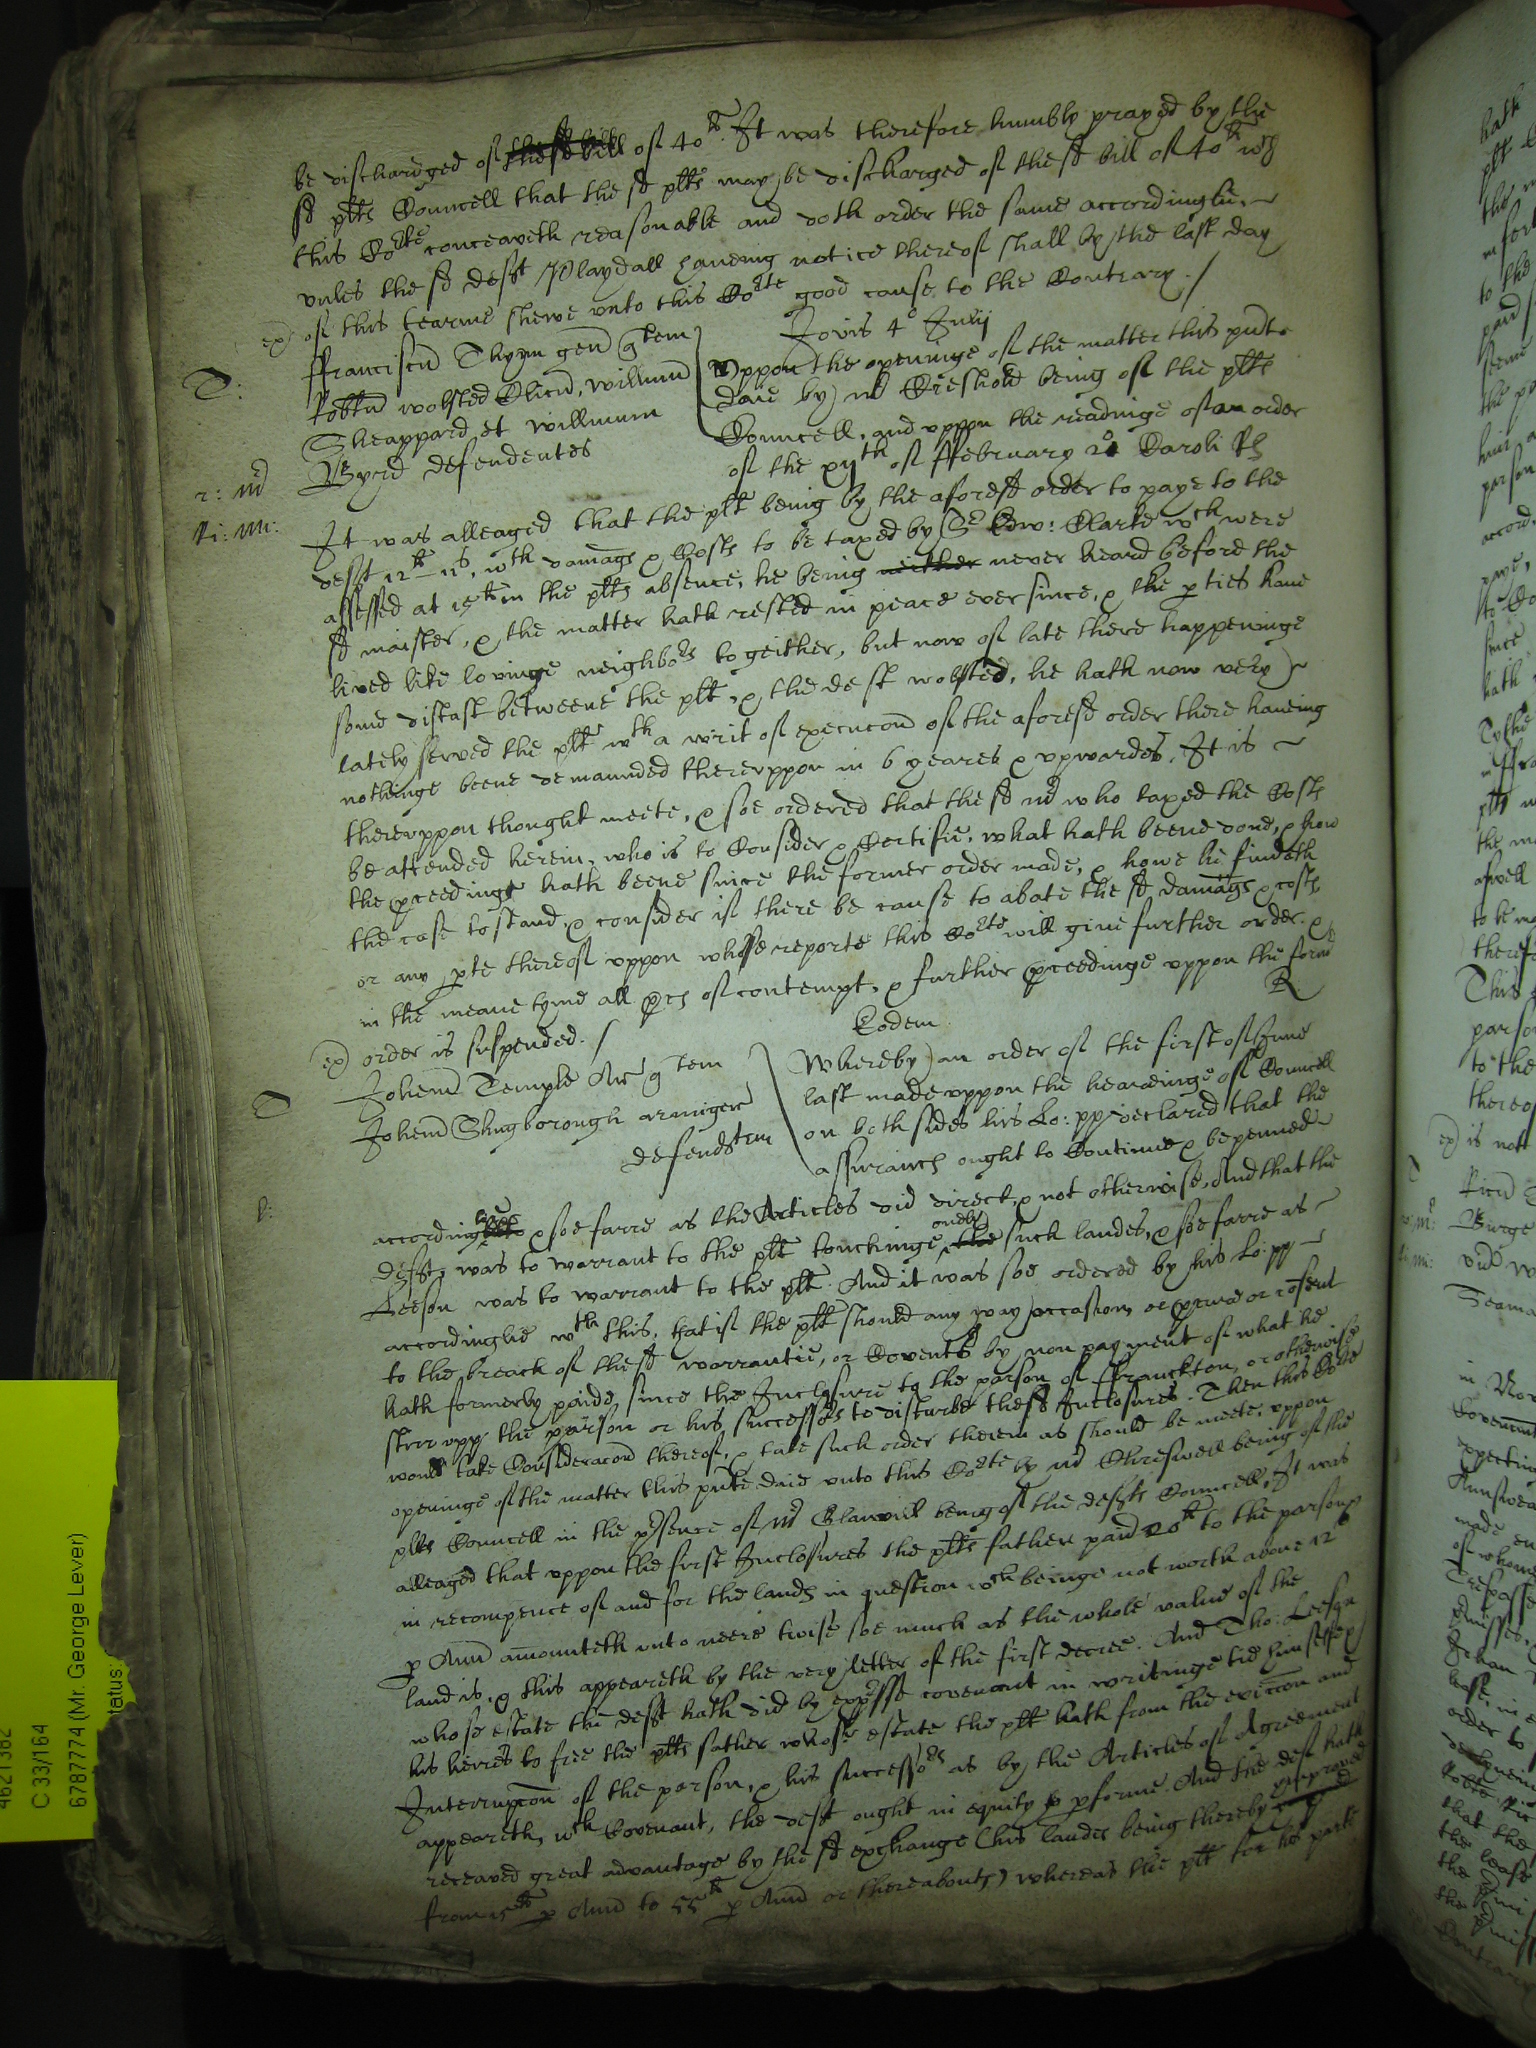 be discharged of the sd bill of 40li. It was therefore humbly prayed by the
sd plts Councell that the sd plts may be discharged of the sd bill of 40li wch
this Corte conceaveth reasonable and doth order the same accordinglie,
unles the sd deft Playdall haveing notice thereof shall by the last day
ex) of this tearme shewe unto this Corte good cause to the Contrary. /
Jovis 4o Julij
D:
Franciscu Thynn gen qtem
Robtu wolsted Clicu, willimu
Sheappard et willimum
Byrd defendentes
r: mr
Ri: mi:
Uppon the openinge of the matter this pnte
daie by mr Creshold being of the plts
Councell, and uppon the readinge of an order
of the xijth of February 2o Caroli Rs
It was alleaged that the plt being by the aforesd order to paye to the
deft 12li - 11s, wth damags & Costs to be taxed by Sr Edw: Clarke wch were
assessed at 15li in the plts absence, he being neither never heard before the
sd maister, & the matter hath rested in peace ever since, & the pties have
lived like lovinge neighbors togeither, but now of late there happeninge
some distast betweene the plt, & the deft wolsted, he hath now very
lately served the plt wth a writ of execucon of the aforesd order there haveing
nothinge beene demaunded thereuppon in 6 yeares & upwardes. It is
thereuppon thought meete, & soe ordered that the sd mr who taxed the Costs
be attended herein, who is to Consider & Certifie, what hath beene done, & how
the pceedings hath beene since the former order made, & howe he findeth
the case to stand, & consider if there be cause to abate the sd damags & costs
or any pte thereof uppon whose reporte this Corte will give further order. &
in the meane tyme all pces of contempt, & further pceedinge uppon the form
ex) order is suspended. /
R
Eodem
D
Johem Temple Ar qtem
Johem Shugborough armiger
defendtem
l:
Whereby an order of the first of June
last made uppon the heareinge of Councell
on both sides his Lo: pp declared that the
assurancs ought to Continue & be penned
accordinglie & soe farre as the Articles did direct, & not otherwise, And that the
deft, was to warrant to the plt touchinge onely the such landes, & soe farre as
Leeson was to warrant to the plt. And it was soe ordered by his Lo: pp
accordinglie wth this, that if the plt should any way occasion, or pcure or cosent
to the breach of the sd warrantie, or Covents by non payment of what he
hath formerly paide since the Inclosure to the parson of Franckton, or otherwise
stirr upp the parson or his successors to disturbe the sd Inclosures. Then this Corte
would take Consideracon thereof, & take such order therein as should be meete, uppon
openinge of the matter this pnte daie unto this Corte by mr Chreswell being of the
plts Councell in the psence of mr Glanvill being of the defts Councell, It was
alleaged that uppon the first Inclosures the plts father paid 20li to the parson
in recompence of and for the lands in question wch beinge not worth above 12li
p Ann amounteth unto neere twise soe much as the whole value of the
land is, & this appeareth by the very letter of the first decree. And Tho: Leeson
whose estate the deft hath did by expsse covenant in writinge tie himselfe &
his heires to free the plts father whose estate the plt hath from the eviccon and
Interrupcon of the parson, & his successors as by the Articles of Agreement
appeareth, wch Covenant, the deft ought in equity to pforme. And the deft hath
receaved great advantage by the sd exchange (his landes being thereby improved
from 15li p Ann to 55li p Ann or thereabouts) whereas the plt for his parte
4621382
C 33/164
6787774 (Mr. George Lever)
tatus: